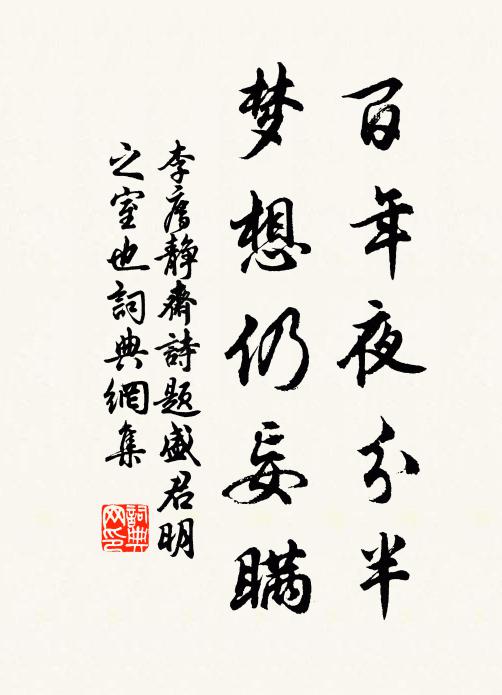 百年夜分半
梦想仍妄瞒
李廌静斋诗题盛君明
之室也词典网集
词典网印